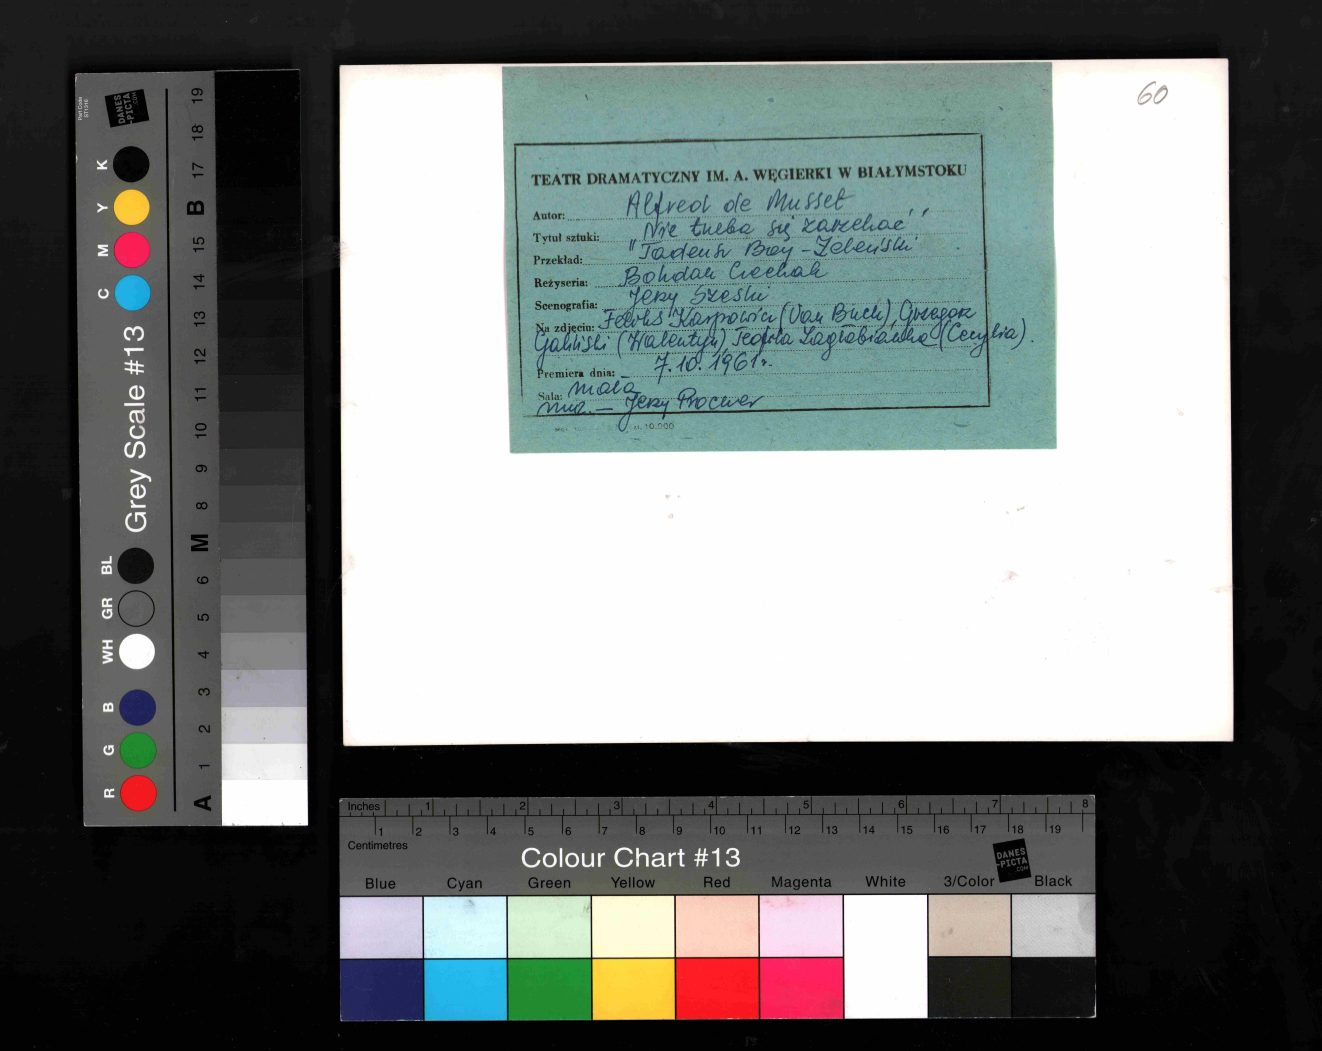 60
TEATR DRAMATYCZNY IM. A. WĘGIERKI W BIAŁYMSTOKU
Autor: Alfred de Musset
Tytuł sztuki: "Nie trzeba się zarzekać"
Przekład: Tadeusz Boy-Żeleński
Reżyseria: Bohdan Czechak
Scenografia: Jerzy Szeski
Na zdjęciu: Feliks Karpowicz (Van Buck), Grzegorz
Galiński (Walentyn) Teofila Zagłobianka (Cecylia).
Premiera dnia: 7.10.1961r.
Sala: mała
muz. — Jerzy Procner
zł. 10.000
Part Code
ST1310
DANES
-PICTA
.COM
Grey Scale #13
K
Y
M
C
BL
GR
WH
B
G
R
19
18
17
B
15
14
13
12
11
10
9
8
M
6
5
4
3
2
1
A
Inches 1 2 3 4 5 6 7 8
1 2 3 4 5 6 7 8 9 10 11 12 13 14 15 16 17 18 19
Centimetres
Colour Chart #13
DANES
-PICTA
.COM
Blue Cyan Green Yellow Red Magenta White 3/Color Black